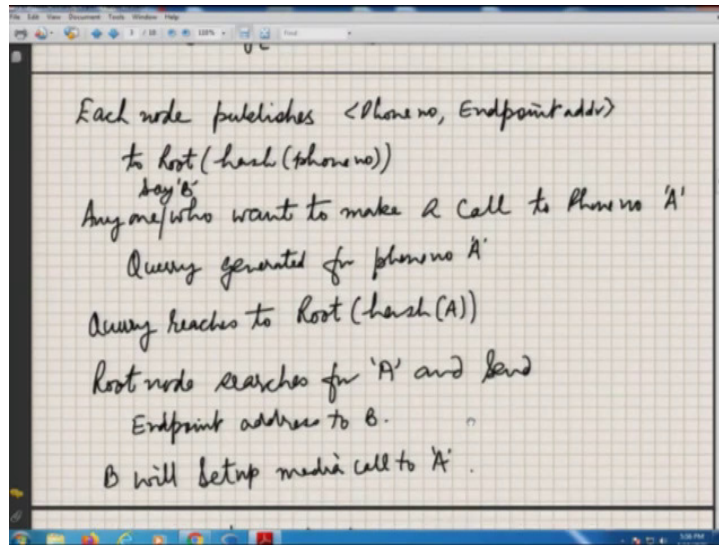 File Edit View Document Tools Window Help
3 / 18 110% Find
Each node publishes <Phone no, Endpoint addr>
to Root (hash (phone no))
say 'B'
Any one/who want to make a call to Phone no 'A'
Query generated for phone no 'A'
Query reaches to Root (hash (A))
Root node searches for 'A' and send
Endpoint address to B.
B will setup media call to 'A'.
5:56 PM